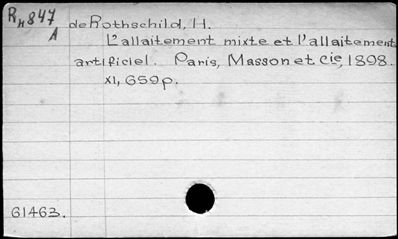 RH847 de Rothschild, H.
A L'allaitement mixte et l'allaitement
artificiel. Paris, Masson et Cie, 1898.
XI, 659p.
61463.